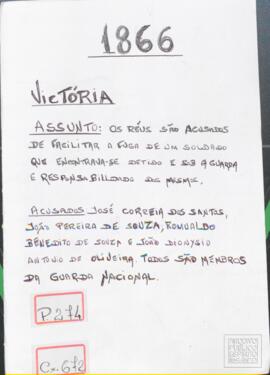 1866
VICTÓRIA
ASSUNTO: OS RÉUS SÃO ACUSADOS
DE FACILITAR A FUGA DE UM SOLDADO
QUE ENCONTRAVA-SE DETIDO E SOB A GUARDA
E RESPONSABILIDADE DOS MESMOS.
ACUSADOS: JOSÉ CORREIA DOS SANTOS,
JOÃO PEREIRA DE SOUZA, ROMUALDO
BENEDITO DE SOUZA E JOÃO DIONYSIO
ANTONIO DE OLIVEIRA. TODOS SÃO MEMBROS
DA GUARDA NACIONAL.
P.274
Cx.672
ARQUIVO
PÚBLICO
ESPÍRITO